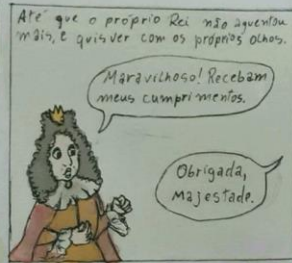 Até que o próprio Rei não aguentou
mais, e quis ver com os próprios olhos.
Maravilhoso! Recebam
meus cumprimentos.
Obrigada,
Majestade.